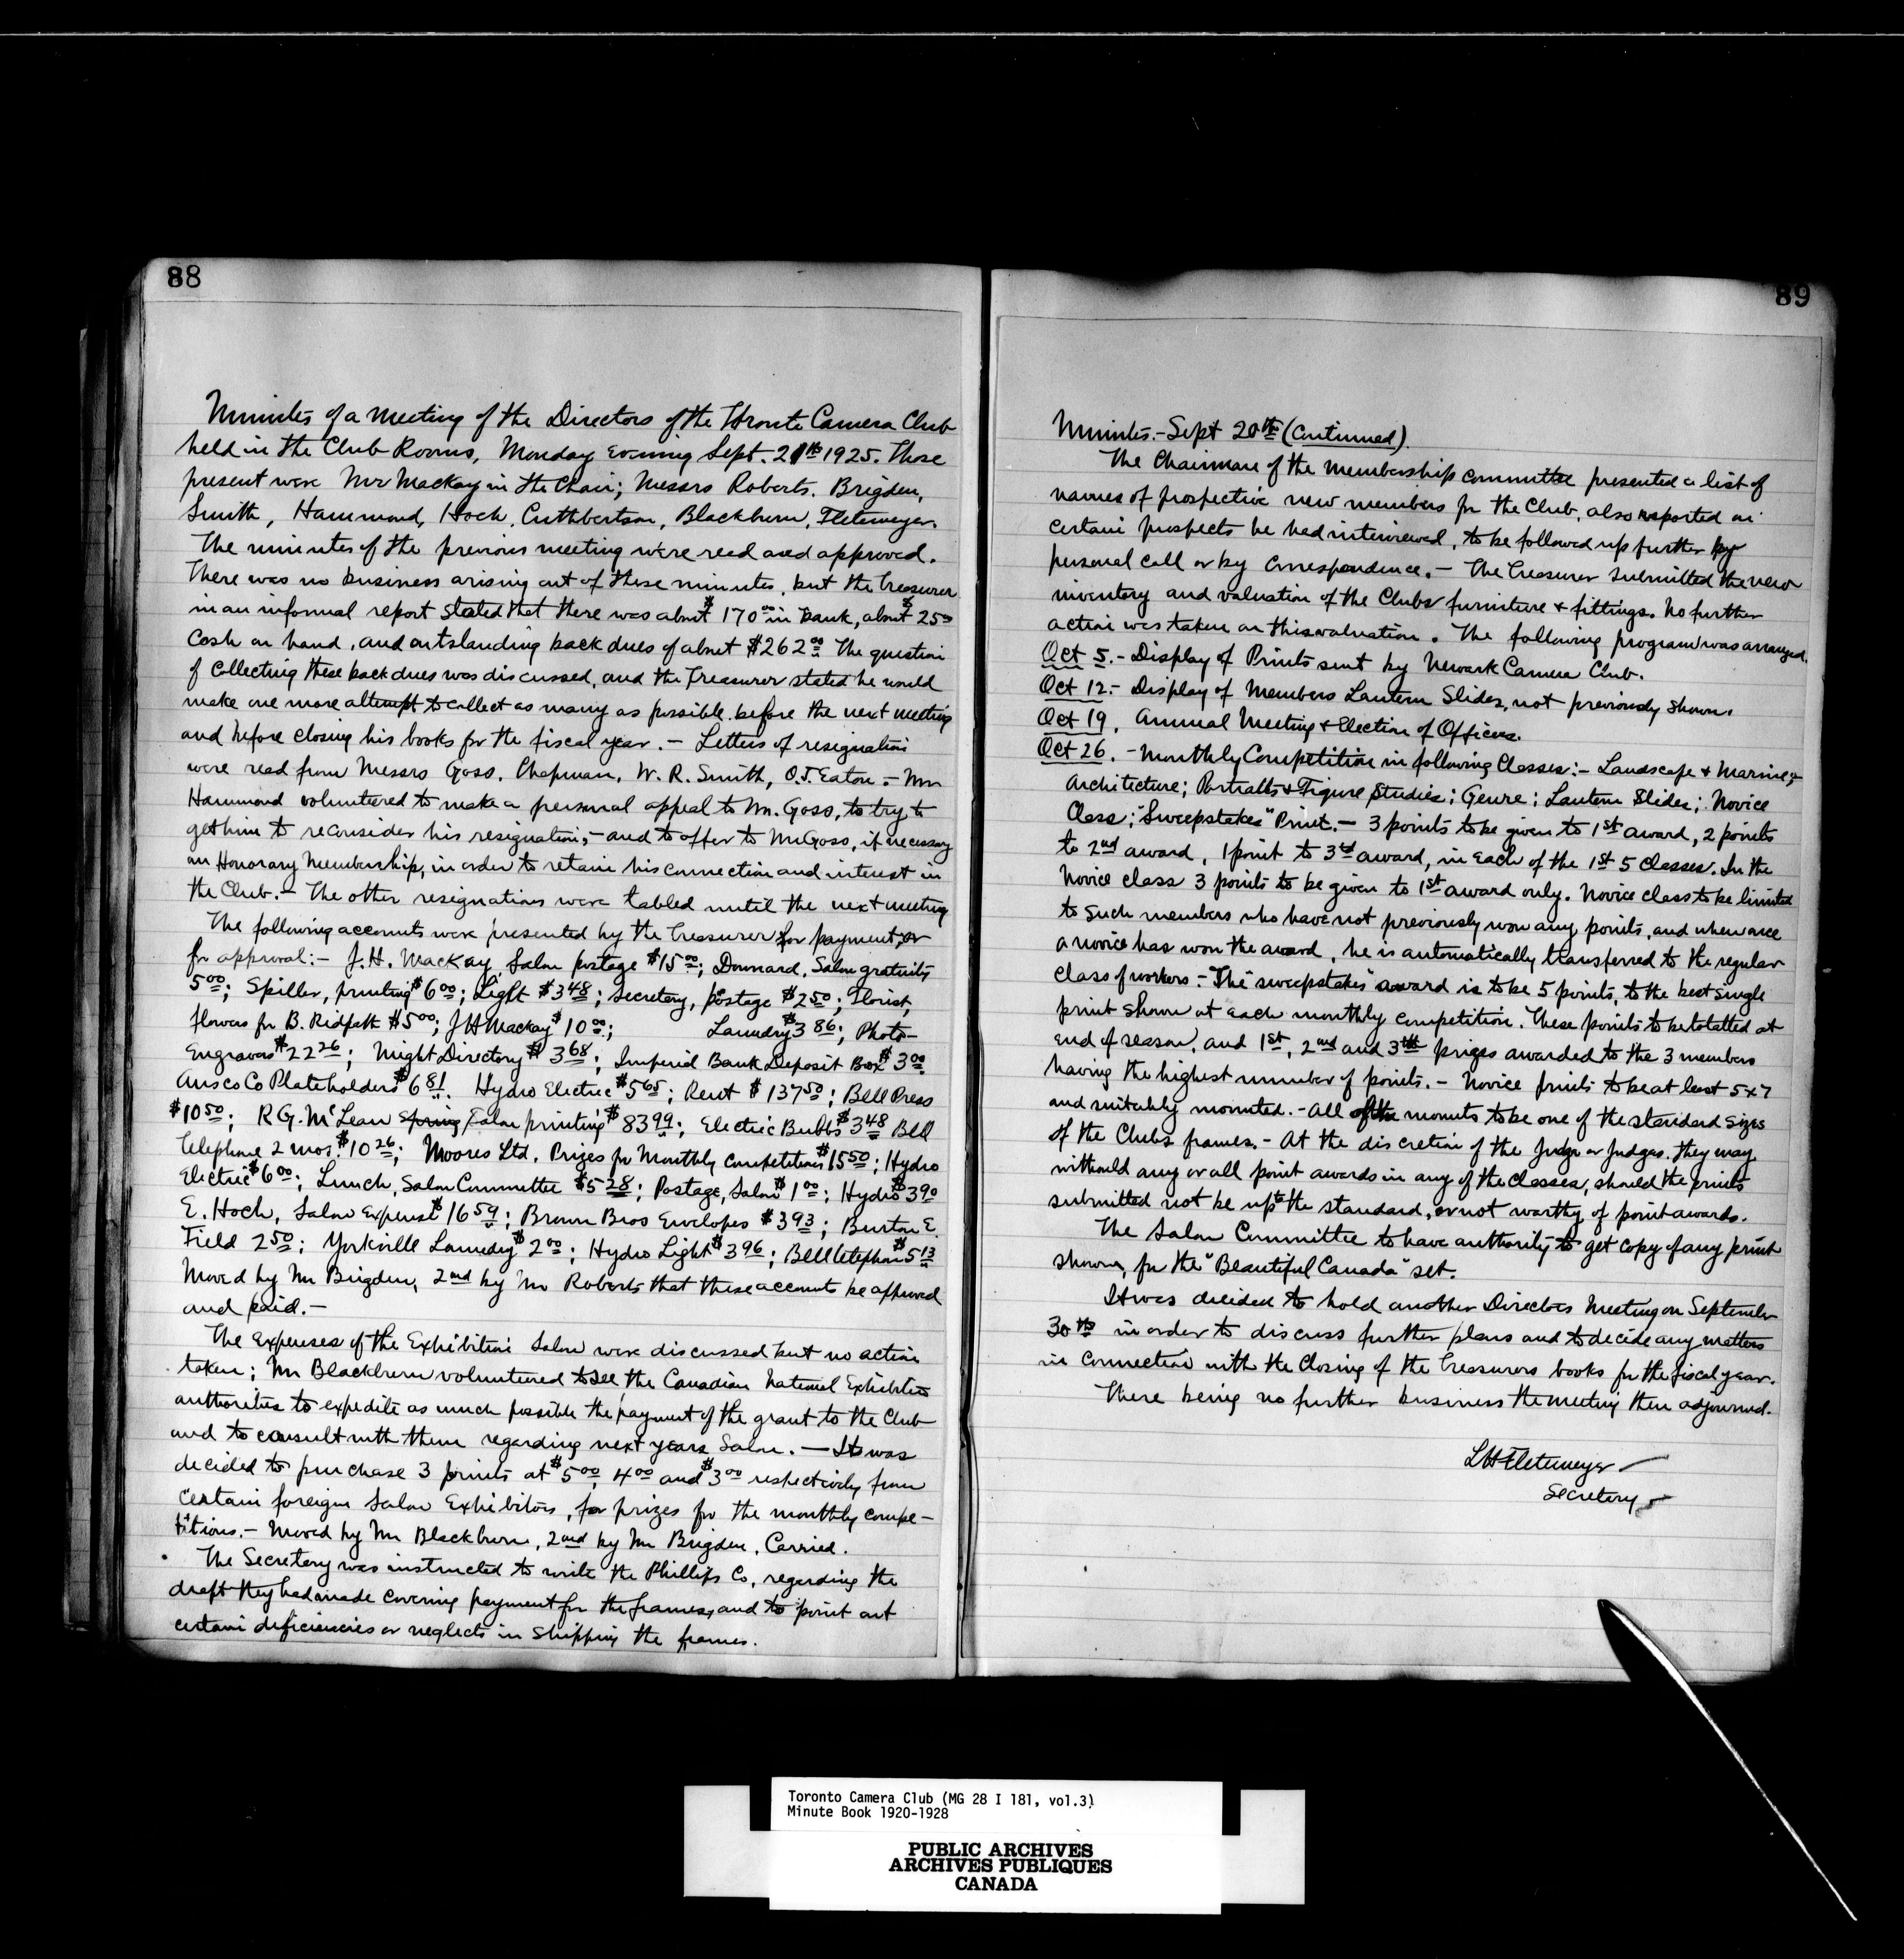 88
Minutes of a Meeting of the Directors of the Toronto Camera Club
held in the Club Rooms, Monday Evening Sept. 21th 1925. Those
present were Mr Mackay in the Chair; Messrs Roberts. Brigden,
Smith, Hammond, Hoch, Cuthbertson, Blackburn, Fletemeyer.
The minutes of the previous meeting were read and approved.
There was no business arising out of these minutes, but the Treasurer
in an informal report stated that there was about $170 00 in bank, about $25 00
Cash on hand, and outstanding back dues of about $262 00 The question
of collecting these back dues was discussed, and the Treasurer stated he would
make one more attempt to collect as many as possible before the next meeting
and before closing his books for the fiscal year. - Letters of resignation
were read from Messrs Goss, Chapman, W. R. Smith, O.J. Eaton. - Mr
Hammond volunteered to make a personal appeal to Mr. Goss, to try to
get him to reconsider his resignation, - and to offer to Mr Goss, if necessary
an Honorary Membership, in order to retain his connection and interest in
the Club. - The other resignations were tabled until the next meeting
The following accounts were presented by the Treasurer for payment, or
for approval: - J. H. Mackay, Salon postage $15 00; Dunnard, Salon gratuity
5 00; Spiller, printing $6 00; Light $3 48; Secretary, postage $2 50; Florist,
flowers for B. Ridpath $5 00; J H Mackay $10 00; Laundry $3 86; Photo-
Engravers $22 26; Might Directory $3 68; Imperial Bank Deposit Box $3 00
Ansco Co Plateholders $6 81. Hydro Electric $5 65; Rent $137 50; Bell Press
$10 50; R G. McLean Spring Salon printing $83 99; Electric Bulbs $3 48 Bell
Telephone 2 mos. $10 26; Moores Ltd. Prizes for Monthly Competitions $15 50; Hydro
Electric $6 00; Lunch, Salon Committee $5 28; Postage, Salon $1 00; Hydro $3 90
E. Hoch, Salon Expense $16 59; Brown Bros Envelopes $3 93; Burton E.
Field 2 50; Yorkville Laundry $2 00; Hydro Light $3 96; Bell telephone $5 13
Moved by Mr Brigden, 2nd by Mr Roberts that these accounts be approved
and paid. -
The expenses of the Exhibition Salon were discussed but no action
taken; Mr Blackburn volunteered to see the Canadian National Exhibition
authorities to expedite as much possible the payment of the grant to the Club
and to consult with them regarding next years Salon. - It was
decided to purchase 3 prints at $5 00, 4 00 and $3 00 respectively from
certain foreign Salon Exhibitors, for prizes for the monthly compe-
titions. - Moved by Mr Blackburn, 2nd by Mr Brigden, Carried.
The Secretary was instructed to write the Phillips Co, regarding the
draft they had made covering payment for the frames, and to point out
certain deficiencies or neglects in shipping the frames.
89
Minutes. - Sept 20th (Continued).
The Chairman of the Membership committee presented a list of
names of prospective new members for the Club, also reported on
certain prospects he had interviewed, to be followed up further by
personal call or by correspondence. - The Treasurer submitted the new
inventory and valuation of the Clubs furniture & fittings. No further
action was taken on this valuation. The following program was arranged.
Oct 5. - Display of Prints sent by Newark Camera Club.
Oct 12. - Display of Members Lantern Slides, not previously shown.
Oct 19. Annual Meeting & Election of Officers.
Oct 26. - Monthly Competition in following Classes: - Landscape & Marine;
Architecture; Portraits & Figure Studies; Genre; Lantern Slides; Novice
Class; "Sweepstakes" Print. - 3 points to be given to 1st award, 2 points
to 2nd award, 1 point to 3rd award, in each of the 1st 5 classes. In the
Novice class 3 points to be given to 1st award only. Novice class to be limited
to such members who have not previously won any points, and when once
a novice has won the award, he is automatically transferred to the regular
class of workers. - The "sweepstakes" award is to be 5 points, to the best single
print shown at each monthly competition. These points to be totatted at
end of season, and 1st, 2nd and 3rd prizes awarded to the 3 members
having the highest number of points. - Novice prints to be at least 5x7
and suitably mounted. - All of the mounts to be one of the standard sizes
of the Clubs frames. - At the discretion of the Judge or Judges. they may
withould any or all point awards in any of the classes, should the prints
submitted not be up to the standard, or not worthy of point awards.
The Salon Committee to have authority to get copy of any print
shown, for the "Beautiful Canada" set.
It was decided to hold another Directors Meeting on September
30th in order to discuss further plans and to decide any matters
in connection with the closing of the Treasurers books for the fiscal year.
There being no further business the meeting then adjourned.
L H Fletemeyer
Secretary
Toronto Camera Club (MG 28 I 181, vol.3)
Minute Book 1920-1928
PUBLIC ARCHIVES
ARCHIVES PUBLIQUES
CANADA